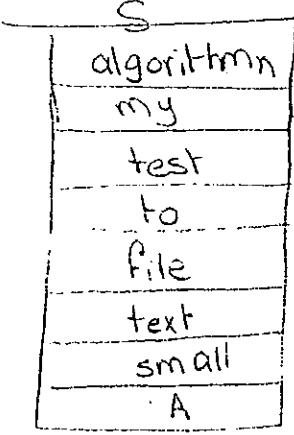 S
algorithmn
my
test
to
file
text
small
A